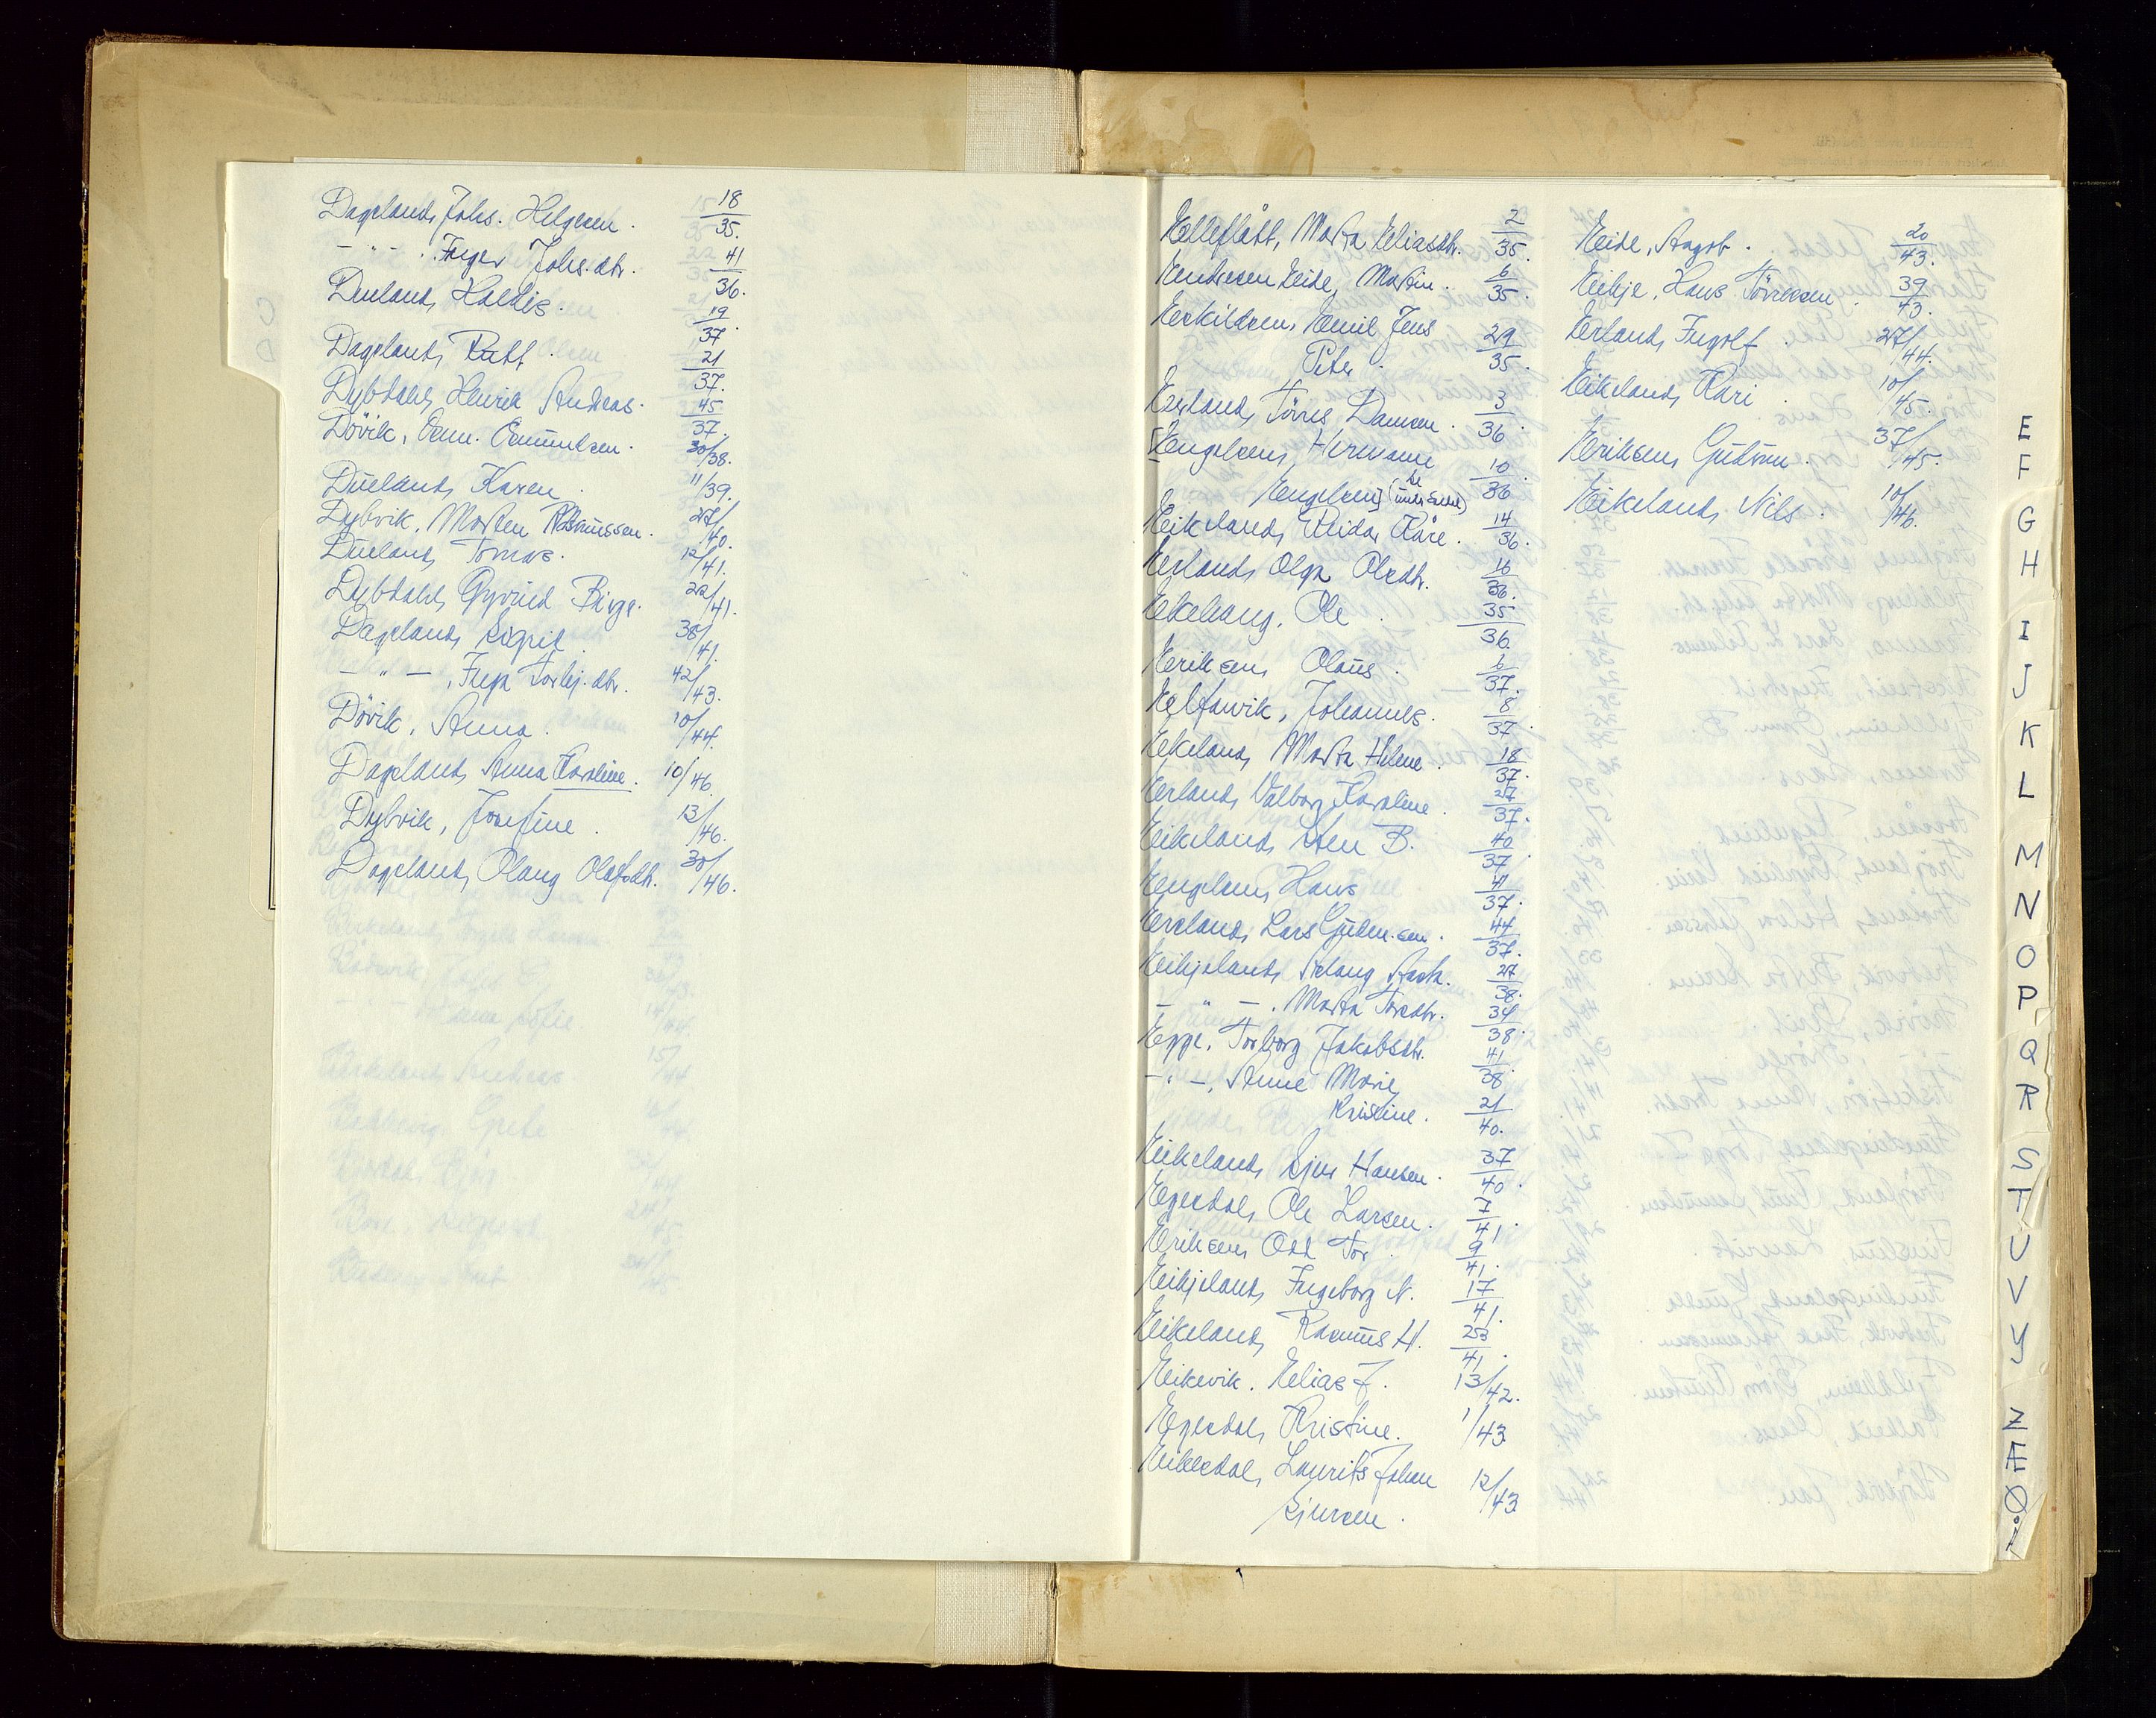 Dagsland, Johs. Helgesen. 18/35.
— " — . Inger Johs.dtr. 41/36.
Dueland, Haldis. 19/37.
Dagsland, Rutt. 21/37.
Dybdahl, Henrik Andreas. 45/37.
Dövik, Osm. Osmundsen. 30/38.
Dueland, Karen. 11/39.
Dybvik, Morten Rasmussen. 27/40.
Dueland, Tomas. 12/41.
Dybdahl, Gyrvied Birge. 22/41.
Dagsland, Sigrid. 38/41.
— " — , Inga Torbj.dtr. 42/43.
Dövik, Anna. 10/44.
Dagsland, Anna Karoline. 10/46.
Dybvik, Josefine. 13/46.
Dagsland, Olaug Olafsdtr. 30/46.
Elleflått, Marta Eliasdtr. 2/35.
Endresen Eide, Martin. 6/35.
Eskildsen, Emil Jens
Peter. 29/35.
Erland, Törres Dansen. 3/36.
[Engelsen, Hermann
Engelsen] (se under Sætre) 10/36.
Eikeland, Reidar Kåre. 14/36.
Erland, Olga Olsdtr. 16/36.
Ekehaug, Ole. 35/36.
Eriksen, Olaus. 6/37.
Eltarvik, Johannes. 8/37.
Eikeland, Marta Helene. 18/37.
Erland, Valborg Karoline. 27/37.
Eikeland, Sten B. 40/37.
Engelsen, Hans 41/37.
Ersland, Lars Gudm.sen. 44/37.
Eikjeland, Solaug Rash. 27/38.
— " — . Marta Toredtr. 34/38.
Egge. Torborg Jakobsdtr. 41/38.
— " —. Anne Marie
Kristine. 21/40.
Eikeland, Sjur Hansen. 37/40.
Egesdal, Ole Larsen. 7/41.
Eriksen, Odd Tor. 9/41.
Eikjeland, Ingeborg N. 17/41.
Eikeland, Rasmus H. 23/41.
Eikevik. Elias J. 13/42.
Egesdal, Kristine. 1/43
Eikesdal, Laurits Johan
Sjursen. 12/43
Eide, Aagot. 20/43.
Eikje, Hans Törresen. 39/43.
Erland, Ingolf. 27/44.
Eikeland, Kari. 10/45.
Eriksen, Gudrun. 37/45.
Eikeland, Nils. 10/46.
E
F
G
H
I
J
K
L
M
N
O
P
Q
R
S
T
U
V
Y
Z
Æ
Ø